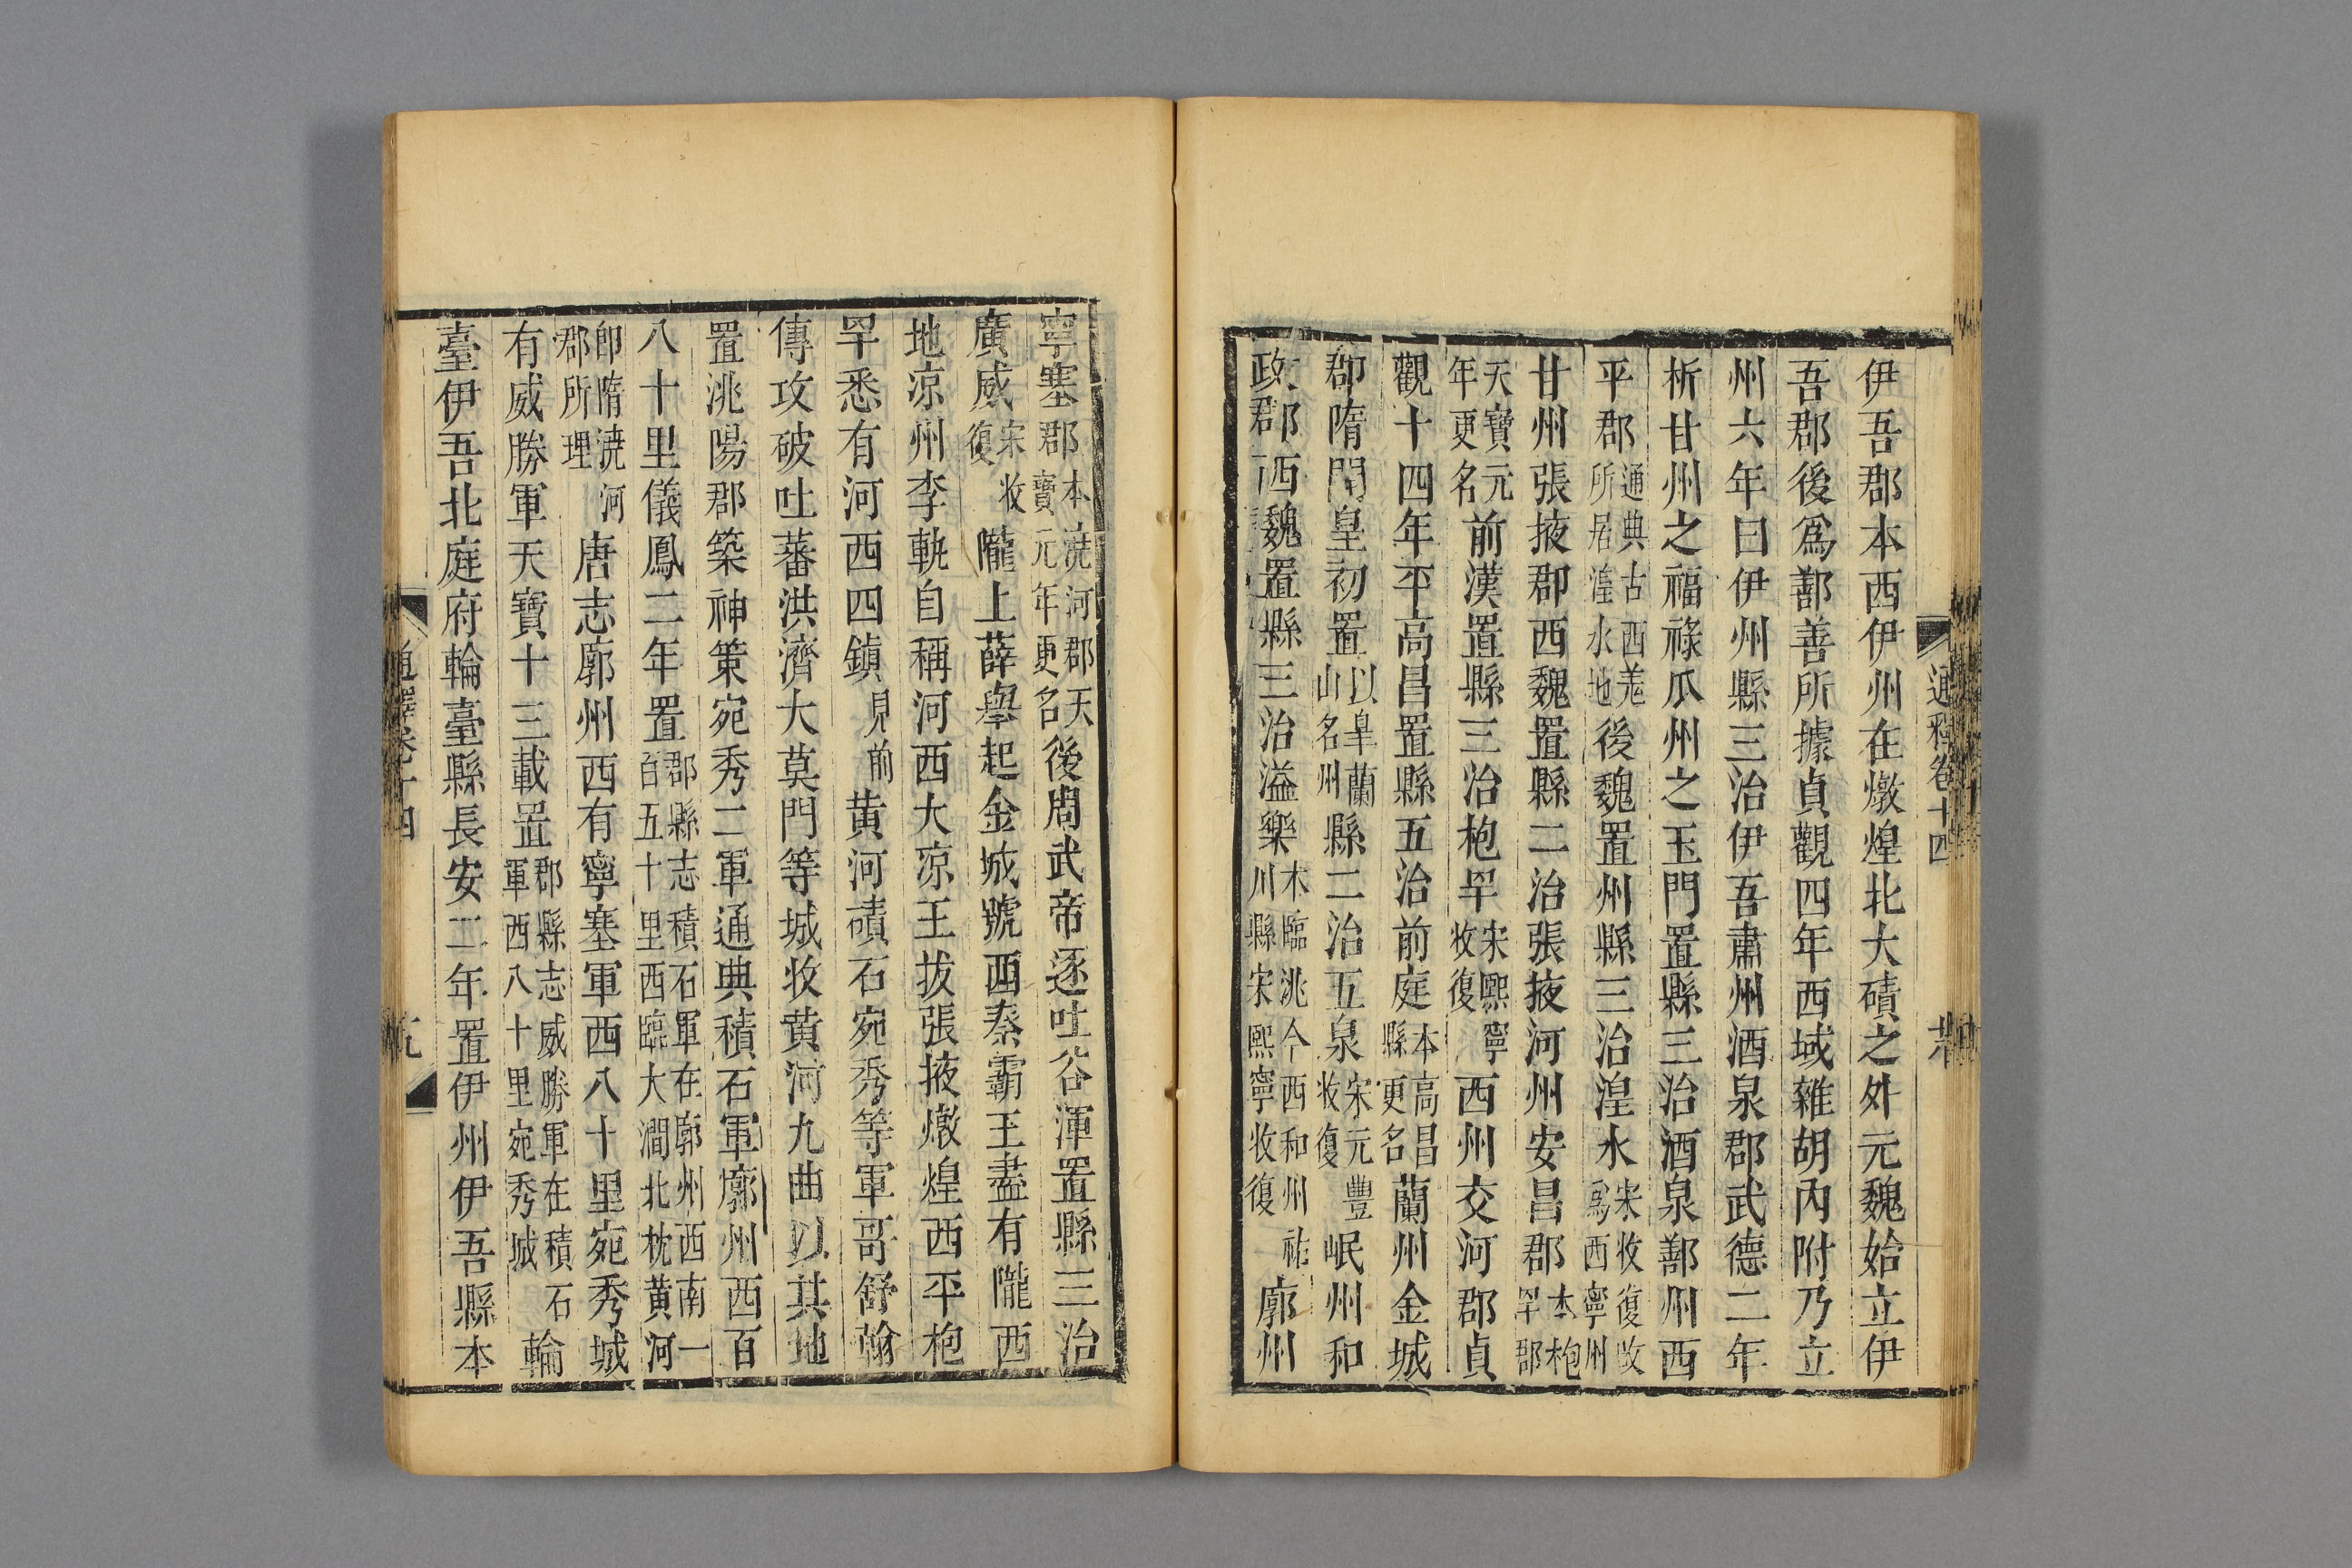 通釋卷十四
伊吾郡本西伊州在燉煌北大磧之外元魏始立伊
吾郡後爲鄯善所據貞觀四年西域雜胡內附乃立
州六年曰伊州縣三治伊吾肅州酒泉郡武德二年
析甘州之福祿瓜州之玉門置縣三治酒泉鄯州西
平郡通典古西羌所居湟水地後魏置州縣三治湟水宋收復改爲西寧州
甘州張掖郡西魏置縣二治張掖河州安昌郡本枹罕郡
天寶元年更名前漢置縣三治枹罕宋熙寧收復西州交河郡貞
觀十四年平高昌置縣五治前庭本高昌縣更名蘭州金城
郡隋開皇初置以皐蘭山名州縣二治五泉宋元豐收復岷州和
政郡西魏置縣三治溢樂本臨洮今西和州祐川縣宋熙寧收復廓州
寧塞郡本澆河郡天寶元年更名後周武帝逐吐谷渾置縣三治
廣威宋收復隴上薛舉起金城號西秦霸王盡有隴西
地凉州李軌自稱河西大凉王拔張掖燉煌西平枹
罕悉有河西四鎮見前黃河磧石宛秀等軍哥舒翰
傳攻破吐蕃洪濟大莫門等城收黃河九曲以其地
置洮陽郡築神策宛秀二軍通典積石軍廓州西百
八十里儀鳳二年置郡縣志積石軍在廓州西南一百五十里西臨大澗北枕黃河
卽隋澆河郡所理唐志廓州西有寧塞軍西八十里宛秀城
有威勝軍天寶十三載置郡縣志威勝軍在積石軍西八十里宛秀城輪
臺伊吾北庭府輪臺縣長安二年置伊州伊吾縣本
通釋卷十四